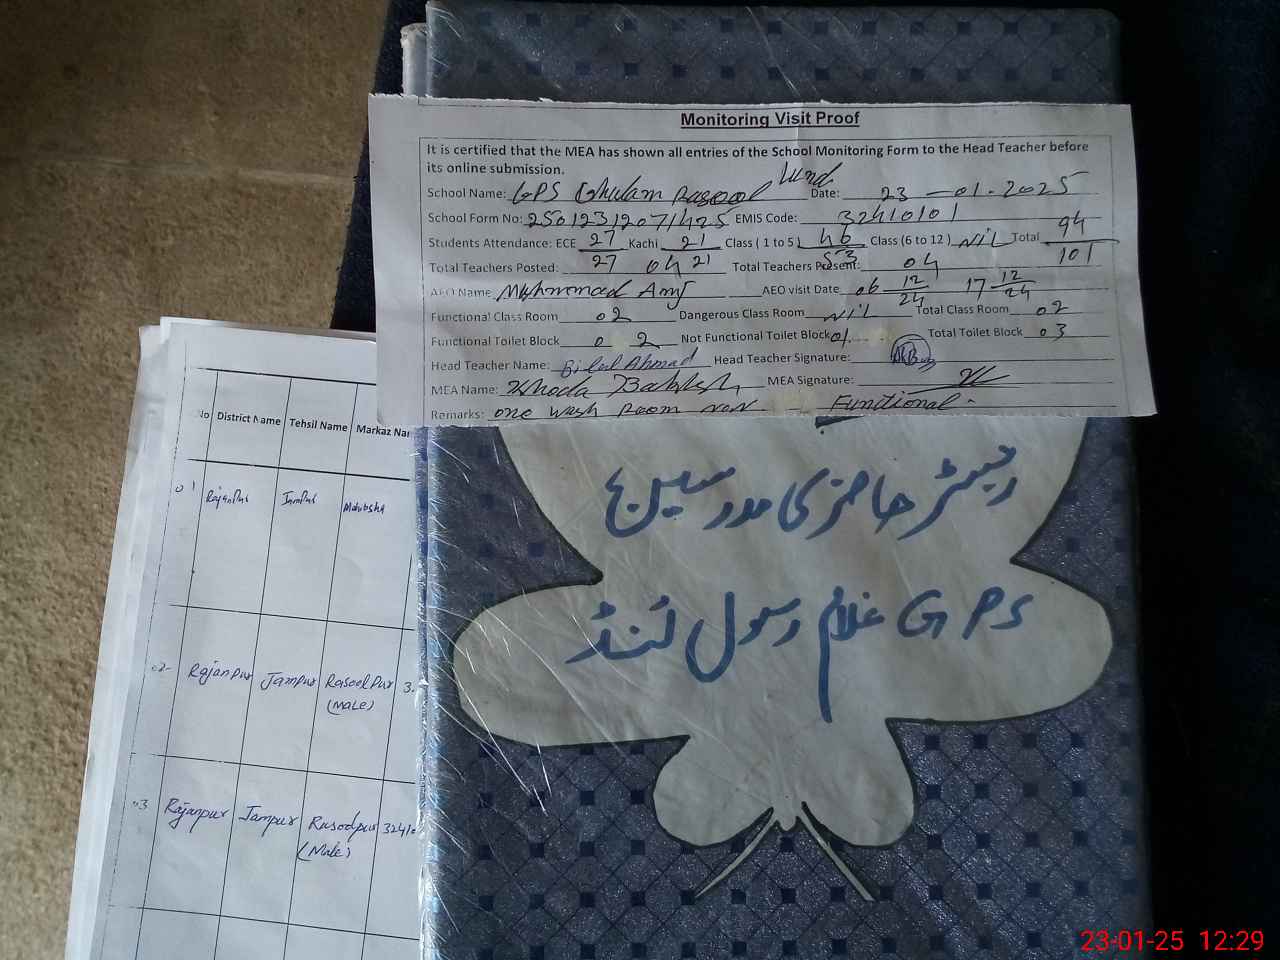 Monitoring Visit Proof
It is certified that the MEA has shown all entries of the School Monitoring Form to the Head Teacher before
its online submission.
School Name: GPS Ghulam Rasool Lund Date: 23-01-2025
School Form No: 25012312071425 EMIS Code: 32410101
Students Attendance: ECE 27/27 Kachi 21/21 Class ( 1 to 5 ) 46/53 Class (6 to 12 ) NIL Total 94/101
Total Teachers Posted: 04 Total Teachers Present: 04
AEO Name Muhammad AEO visit Date 06 12/24 17 12/24
Functional Class Room 02 Dangerous Class Room NIL Total Class Room 02
Functional Toilet Block 02 Not Functional Toilet Block 01 Total Toilet Block 03
Head Teacher Name: Bilal Ahmad Head Teacher Signature:
MEA Name: Khuda Bakhsh MEA Signature:
Remarks: one wash Room non Functional.
No District Name Tehsil Name Markaz Na
01 Rajanpur Jampur
02 Rajanpur Jampur Rasoolpur (Male) 3
03 Rajanpur Jampur Rasoolpur (Male) 3241
رجسٹر حاضری مدرسین
GPS غلام رسول لُنڈ
23-01-25 12:29